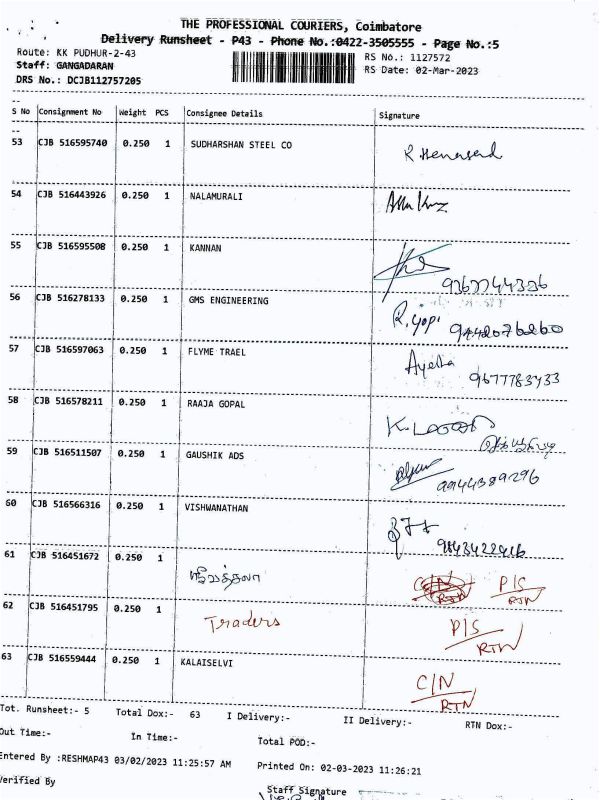 THE PROFESSIONAL COURIERS, Coimbatore
Delivery Runsheet - P43 - Phone No.:0422-3505555 - Page No.:5
Route: KK PUDHUR-2-43 RS No.: 1127572
Staff: GANGADARAN RS Date: 02-Mar-2023
DRS No.: DCJB112757205
S No Consignment No Weight PCS Consignee Details Signature
53 CJB 516595740 0.250 1 SUDHARSHAN STEEL CO
54 CJB 516443926 0.250 1 NALAMURALI
55 CJB 516595508 0.250 1 KANNAN
56 CJB 516278133 0.250 1 GMS ENGINEERING R. Gopi
57 CJB 516597063 0.250 1 FLYME TRAEL
9677783433
58 CJB 516578211 0.250 1 RAAJA GOPAL
59 CJB 516511507 0.250 1 GAUSHIK ADS
9944389296
60 CJB 516566316 0.250 1 VISHWANATHAN
9843422916
61 CJB 516451672 0.250 1 C/N RTN P/S RTN
62 CJB 516451795 0.250 1 Traders P/S RTN
63 CJB 516559444 0.250 1 KALAISELVI C/N RTN
Tot. Runsheet:- 5 Total Dox:- 63 I Delivery:- II Delivery:- RTN Dox:-
Out Time:- In Time:- Total POD:-
Entered By :RESHMAP43 03/02/2023 11:25:57 AM Printed On: 02-03-2023 11:26:21
Verified By Staff Signature